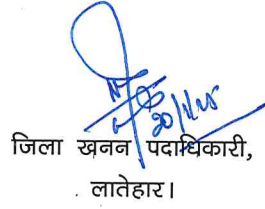 जिला खनन पदाधिकारी,
लातेहार।